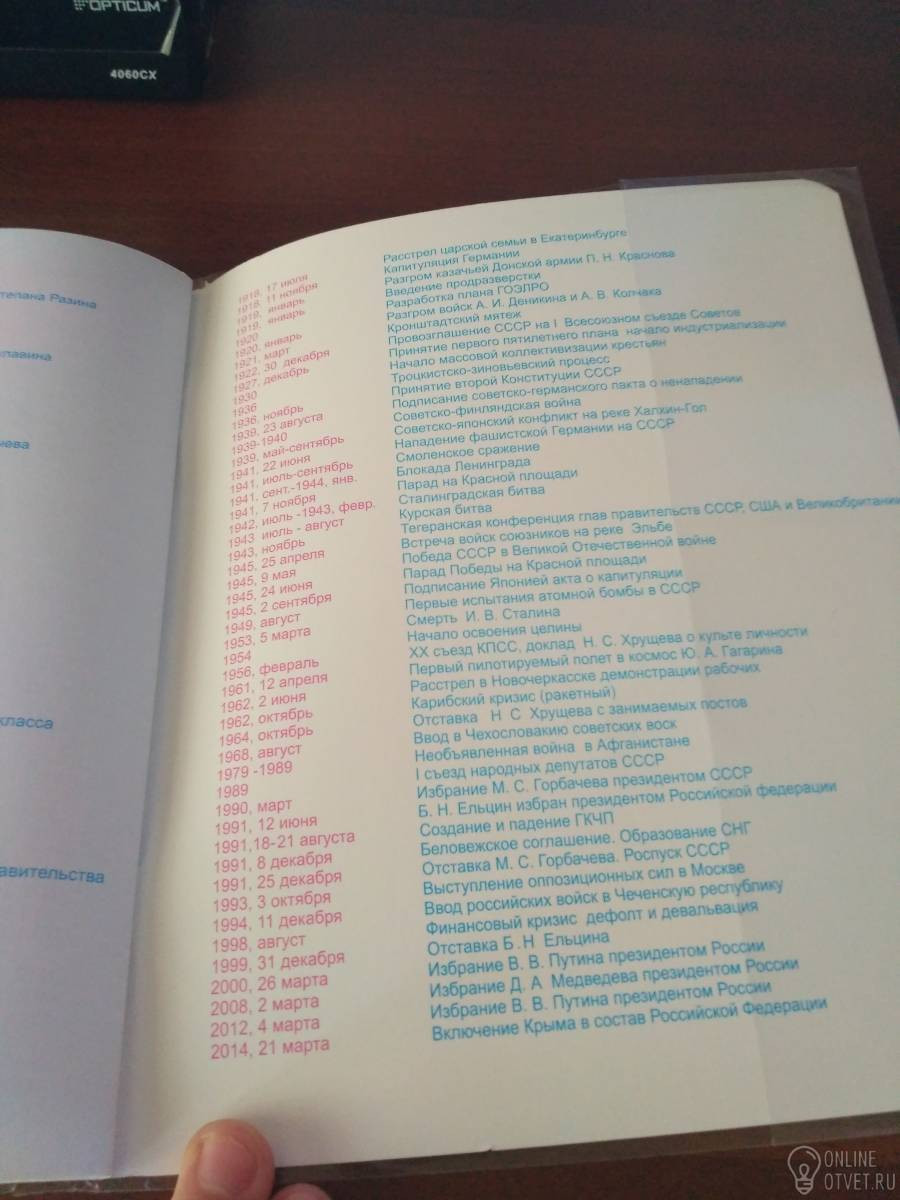 OPTICUM
4060CX
тепана Разина
лавина
чева
класса
авительства
1918, 17 июля Расстрел царской семьи в Екатеринбурге
1918, 11 ноября Капитуляция Германии
1919, январь Разгром казачьей Донской армии П. Н. Краснова
1919, январь Введение продразверстки
1920 Разработка плана ГОЭЛРО
1920, январь Разгром войск А. И. Деникина и А. В. Колчака
1921, март Кронштадтский мятеж
1922, 30 декабря Провозглашение СССР на I Всесоюзном съезде Советов
1927, декабрь Принятие первого пятилетнего плана начало индустриализации
1930 Начало массовой коллективизации крестьян
1936 Троцкистско-зиновьевский процесс
1936, ноябрь Принятие второй Конституции СССР
1939, 23 августа Подписание советско-германского пакта о ненападении
1939-1940 Советско-финляндская война
1939, май-сентябрь Советско-японский конфликт на реке Халхин-Гол
1941, 22 июня Нападение фашистской Германии на СССР
1941, июль-сентябрь Смоленское сражение
1941, сент.-1944, янв. Блокада Ленинграда
1941, 7 ноября Парад на Красной площади
1942, июль -1943, февр. Сталинградская битва
1943 июль - август Курская битва
1943, ноябрь Тегеранская конференция глав правительств СССР, США и Великобритании
1945, 25 апреля Встреча войск союзников на реке Эльбе
1945, 9 мая Победа СССР в Великой Отечественной войне
1945, 24 июня Парад Победы на Красной площади
1945, 2 сентября Подписание Японией акта о капитуляции
1949, август Первые испытания атомной бомбы в СССР
1953, 5 марта Смерть И. В. Сталина
1954 Начало освоения целины
1956, февраль XX съезд КПСС, доклад Н. С. Хрущева о культе личности
1961, 12 апреля Первый пилотируемый полет в космос Ю. А. Гагарина
1962, 2 июня Расстрел в Новочеркасске демонстрации рабочих
1962, октябрь Карибский кризис (ракетный)
1964, октябрь Отставка Н С Хрущева с занимаемых постов
1968, август Ввод в Чехословакию советских воск
1979 -1989 Необъявленная война в Афганистане
1989 I съезд народных депутатов СССР
1990, март Избрание М. С. Горбачева президентом СССР
1991, 12 июня Б. Н. Ельцин избран президентом Российской федерации
1991,18-21 августа Создание и падение ГКЧП
1991, 8 декабря Беловежское соглашение. Образование СНГ
1991, 25 декабря Отставка М. С. Горбачева. Роспуск СССР
1993, 3 октября Выступление оппозиционных сил в Москве
1994, 11 декабря Ввод российских войск в Чеченскую республику
1998, август Финансовый кризис дефолт и девальвация
1999, 31 декабря Отставка Б. Н Ельцина
2000, 26 марта Избрание В. В. Путина президентом России
2008, 2 марта Избрание Д. А Медведева президентом России
2012, 4 марта Избрание В. В. Путина президентом России
2014, 21 марта Включение Крыма в состав Российской Федерации
ONLINE
OTVET.RU